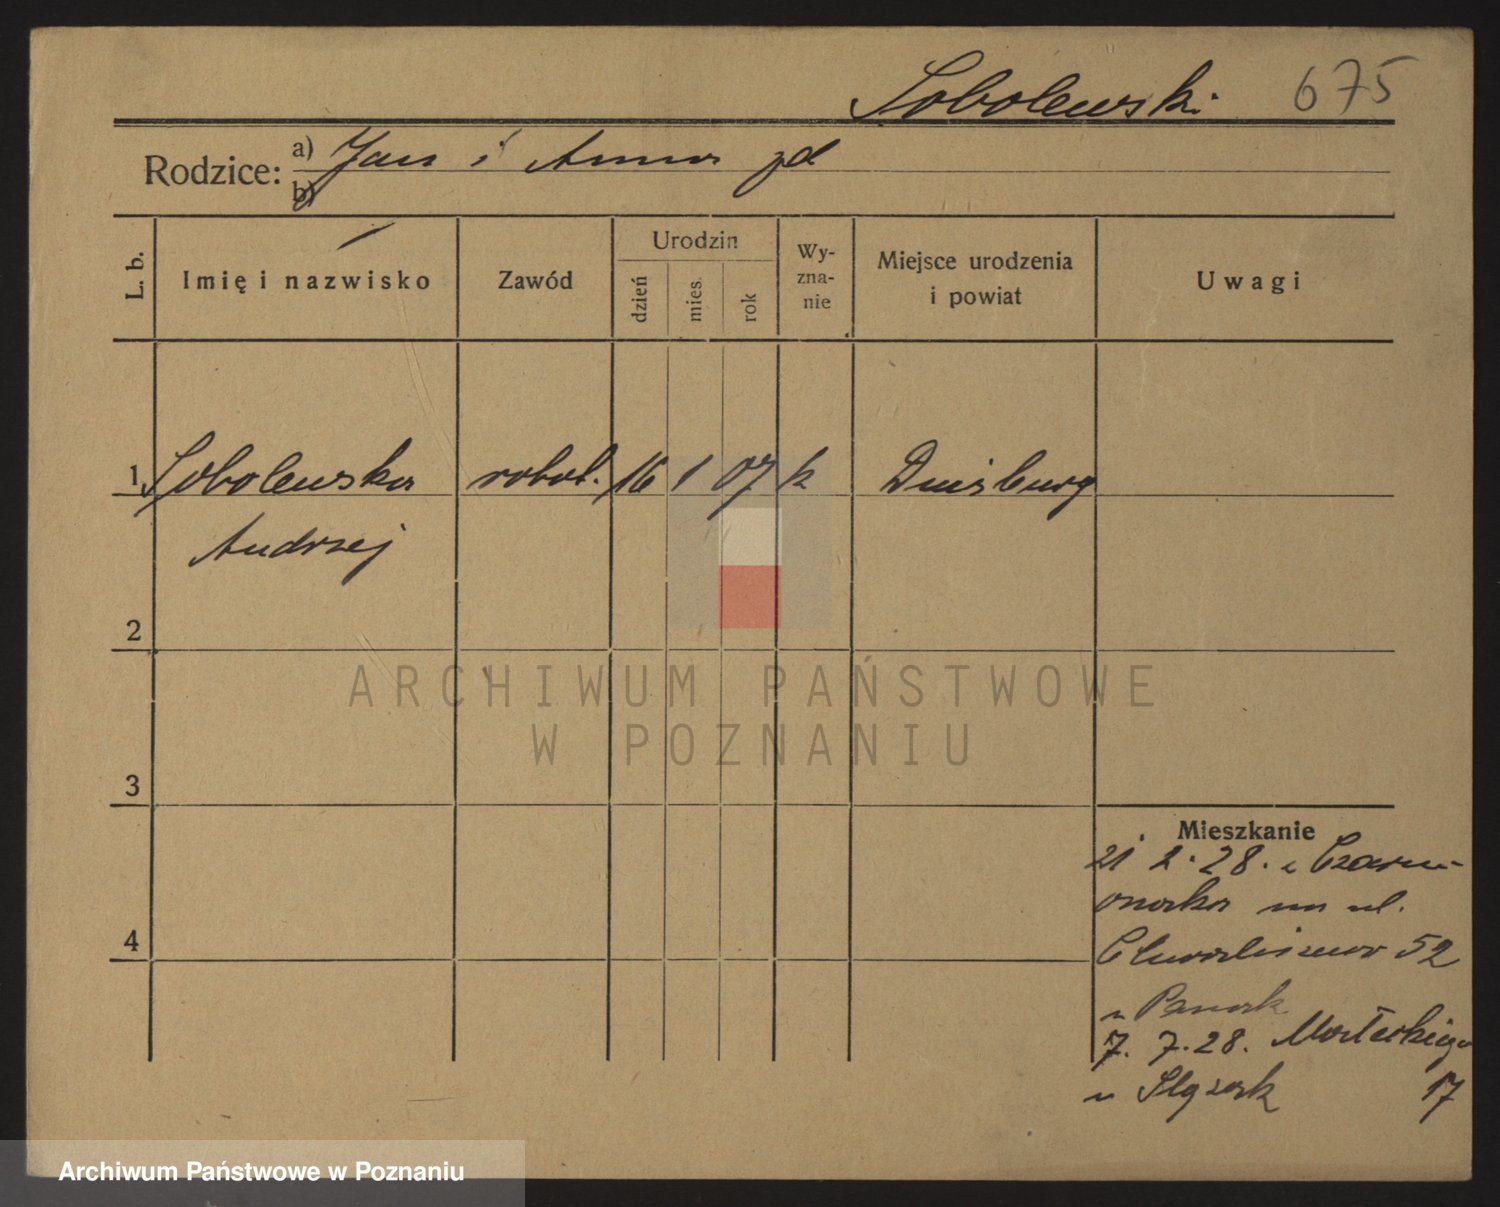 Sobolewski 675
Rodzice: a) Jan i Anna zd
b)
L. b.
Imię i nazwisko
Zawód
Urodzin
dzień
mies.
rok
Wy-
zna-
nie
Miejsce urodzenia
i powiat
Uwagi
1 Sobolewska robot. 16 1 07 k Duisburg
Andrzej
2
ARCHIWUM PAŃSTWOWE
W POZNANIU
3
Mieszkanie
21 2. 28. z Czarn-
na ul.
4
Chwaliszewo 52
7. 7. 28.
17
Archiwum Państwowe w Poznaniu